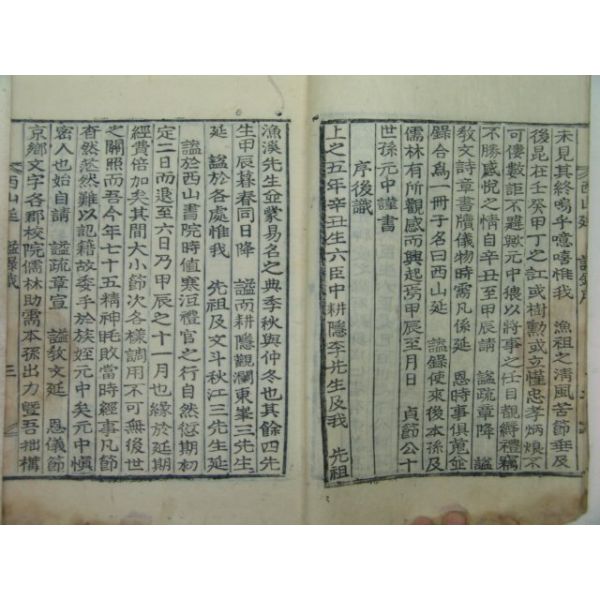 未見其終嗚乎噫嘻惟我 漁祖之淸風苦節垂及
後昆在壬癸甲丁之訌或樹勳或立慬忠孝炳煥不
可僂數詎不韙歟元中猥以將事之任目覩縟禮竊
不勝感悅之情自辛丑至甲辰請 謚疏章降 謚
敎文詩章書牘儀物時需凡係延 恩時事俱蒐並
錄合爲一冊子名曰西山延 謚錄使來後本孫及
儒林有所觀感而興起焉甲辰至月日 貞節公十
世孫元中謹書
序後識
上之五年辛丑生六臣中耕隱李先生及我 先祖
西山延 謚錄序
漁溪先生並蒙易名之典季秋與仲冬也其餘四先
生甲辰暮春同日降 謚而耕隱觀瀾東峯三先生
延 謚於各處惟我 先祖及文斗秋江三先生延
謚於西山書院時値寒沍禮官之行自然愆期初
定二日而退至六日乃甲辰之十一月也緣於延期
經費倍加矣其間大小節次各樣調用不可無後世
之關照而吾今年七十五精神眊敗當時經事凡節
杳然茫然難以記籍故委手於族姪元中矣元中愼
密人也始自請 謚疏章宣 謚敎文延 恩儀節
京鄕文字各郡校院儒林助需本孫出力曁吾拙構
西山延 謚錄識 三